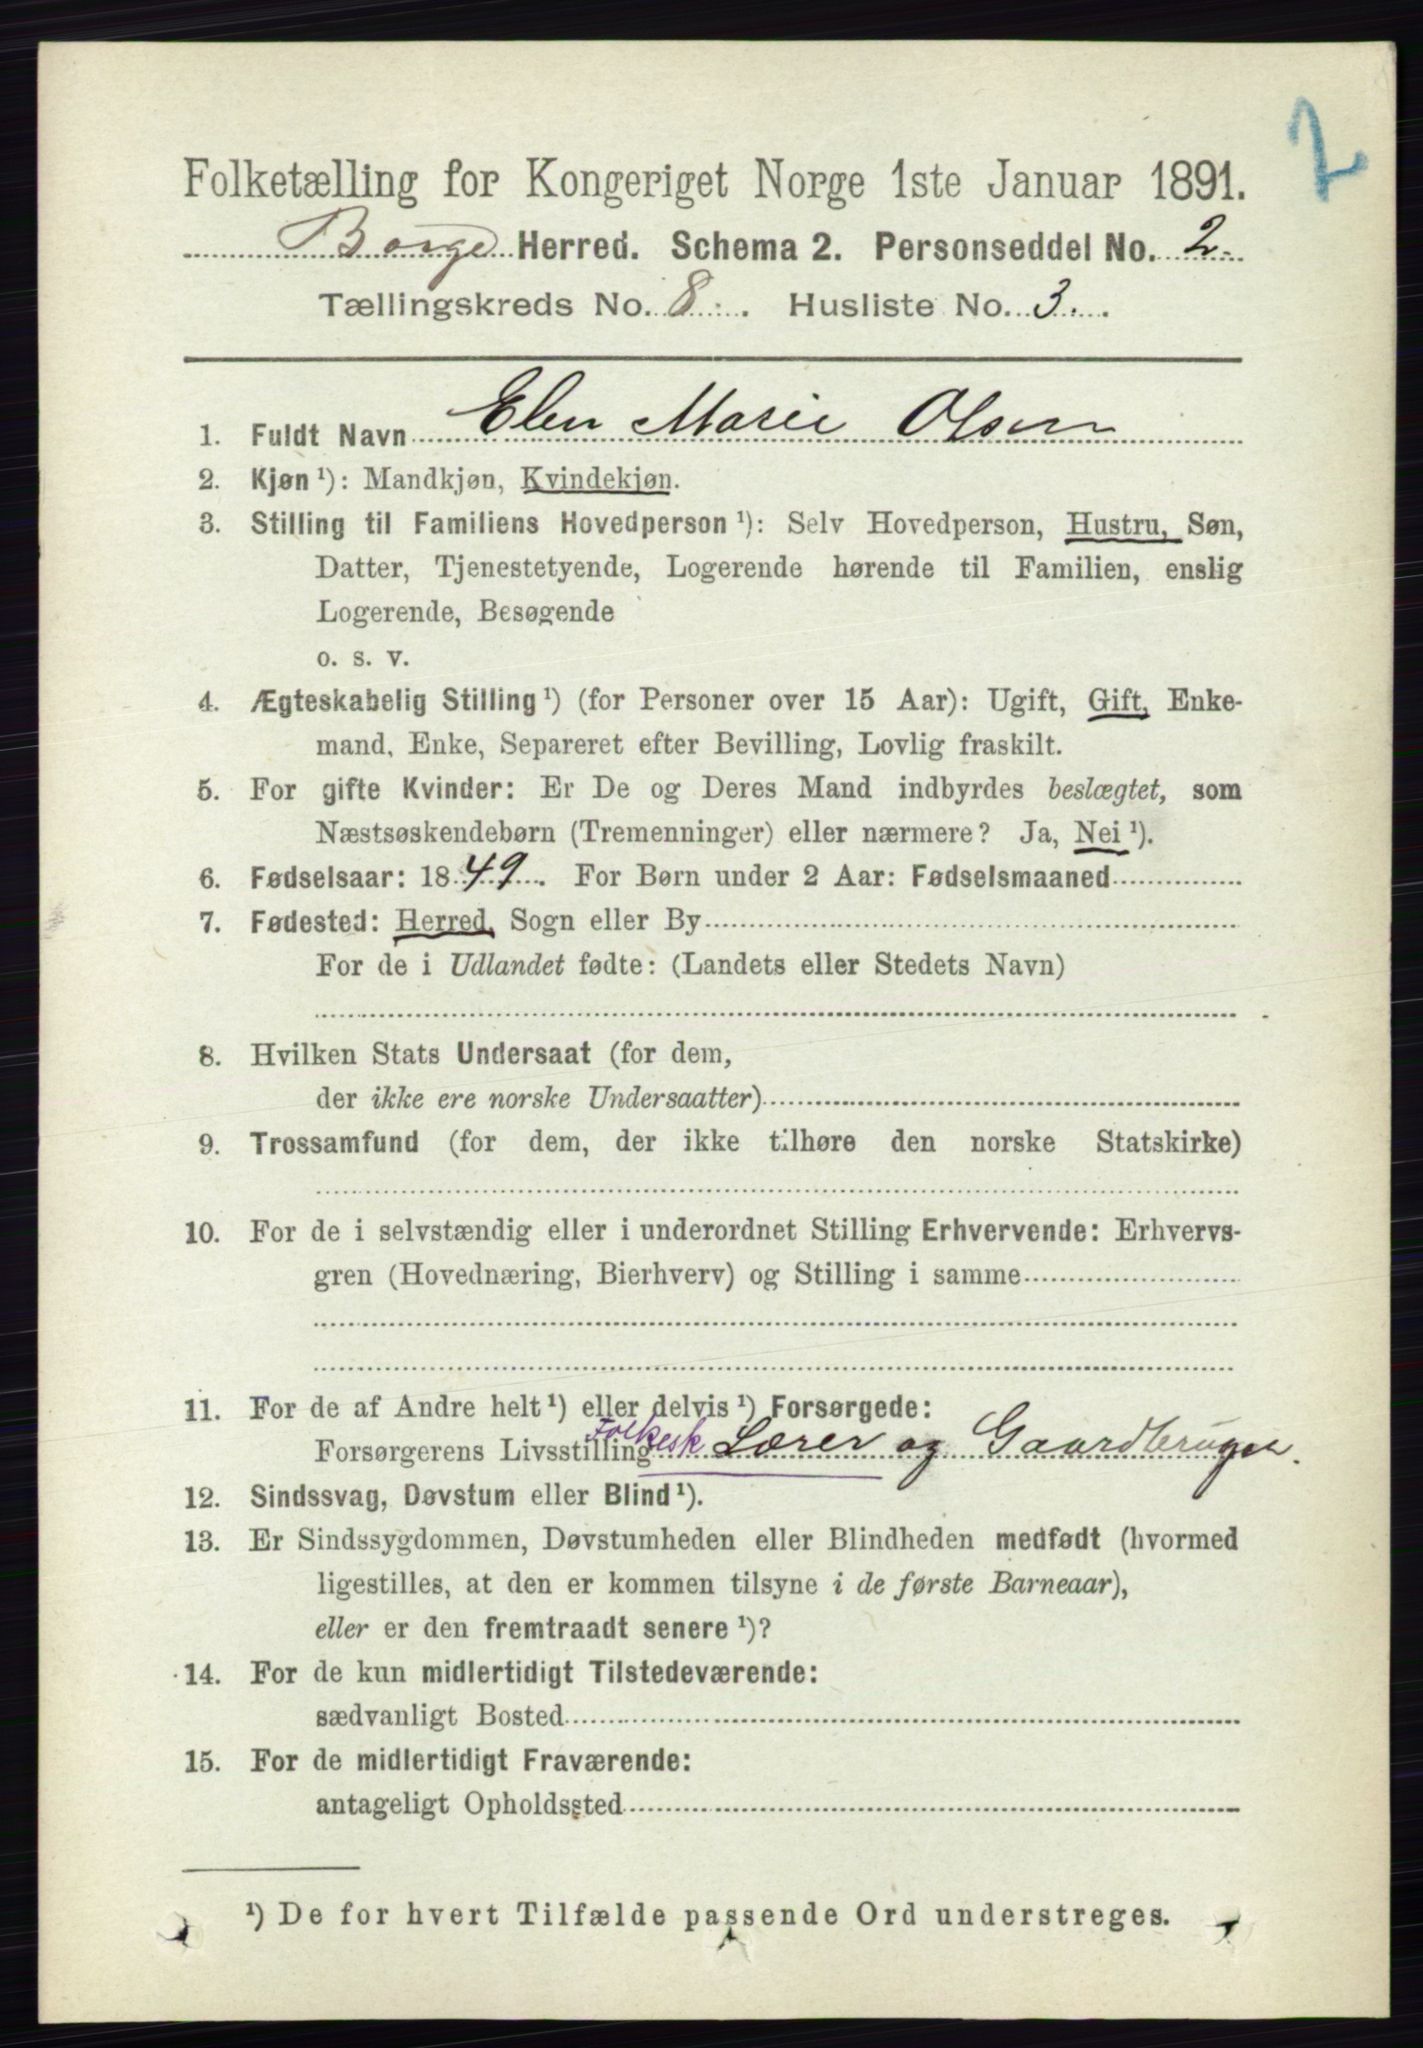 2
Folketælling for Kongeriget Norge 1ste Januar 1891.
Borge Herred. Schema 2. Personseddel No. 2.
Tællingskreds No. 8. Husliste No. 3.
1. Fuldt Navn Elen Marie Olsen
2. Kjøn ¹): Mandkjøn, Kvindekjøn.
3. Stilling til Familiens Hovedperson ¹): Selv Hovedperson, Hustru, Søn,
Datter, Tjenestetyende, Logerende hørende til Familien, enslig
Logerende, Besøgende
o. s. v.
4. Ægteskabelig Stilling ¹) (for Personer over 15 Aar): Ugift, Gift, Enke-
mand, Enke, Separeret efter Bevilling, Lovlig fraskilt.
5. For gifte Kvinder: Er De og Deres Mand indbyrdes beslægtet, som
Næstsøskendebørn (Tremenninger) eller nærmere? Ja, Nei ¹).
6. Fødselsaar: 1849. For Børn under 2 Aar: Fødselsmaaned
7. Fødested: Herred, Sogn eller By
For de i Udlandet fødte: (Landets eller Stedets Navn)
8. Hvilken Stats Undersaat (for dem,
der ikke ere norske Undersaatter)
9. Trossamfund (for dem, der ikke tilhøre den norske Statskirke)
10. For de i selvstændig eller i underordnet Stilling Erhvervende: Erhvervs-
gren (Hovednæring, Bierhverv) og Stilling i samme
11. For de af Andre helt ¹) eller delvis ¹) Forsørgede:
Forsørgerens Livsstilling Folkesk Lærer og Gaardbruger.
12. Sindssvag, Døvstum eller Blind ¹).
13. Er Sindssygdommen, Døvstumheden eller Blindheden medfødt (hvormed
ligestilles, at den er kommen tilsyne i de første Barneaar),
eller er den fremtraadt senere ¹)?
14. For de kun midlertidigt Tilstedeværende:
sædvanligt Bosted
15. For de midlertidigt Fraværende:
antageligt Opholdssted
¹) De for hvert Tilfælde passende Ord understreges.